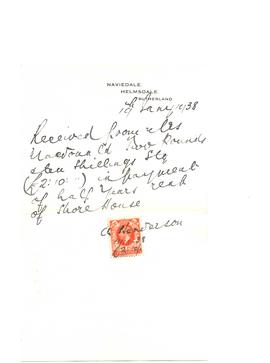 NAVIEDALE,
HELMSDALE,
SUTHERLAND
Jany 1938
Received from
Two Pounds
ten shillings Stg
(£2:10:") in payment
of half years rent
of Shore House
A Henderson